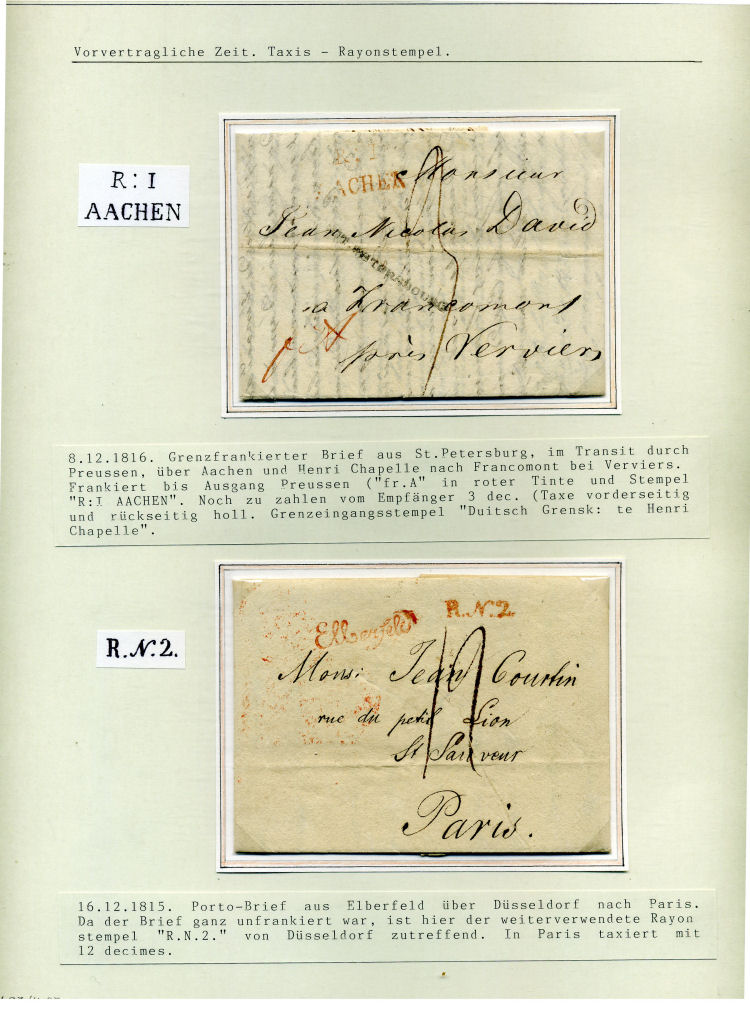 Vorvertragliche Zeit. Taxis - Rayonstempel.
R: I
AACHEN
R: I
AACHEN
Monsieur
Jean Nicolas David
ST PETERSBOURG
a Francomont
près Verviers
fr A
8.12.1816. Grenzfrankierter Brief aus St.Petersburg, im Transit durch
Preussen, über Aachen und Henri Chapelle nach Francomont bei Verviers.
Frankiert bis Ausgang Preussen ("fr.A" in roter Tinte und Stempel
"R:I AACHEN". Noch zu zahlen vom Empfänger 3 dec. (Taxe vorderseitig
und rückseitig holl. Grenzeingangsstempel "Duitsch Grensk: te Henri
Chapelle".
R.N.2.
R.N.2.
Elberfeld
Mons: Jean Courtin
rue du petit Lion
St Sauveur
Paris.
16.12.1815. Porto-Brief aus Elberfeld über Düsseldorf nach Paris.
Da der Brief ganz unfrankiert war, ist hier der weiterverwendete Rayon
stempel "R.N.2." von Düsseldorf zutreffend. In Paris taxiert mit
12 decimes.